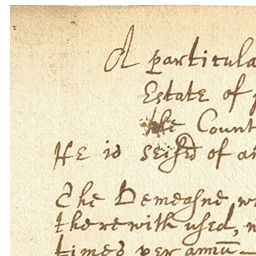 A particula
Estate of
the Count
He is seised of an
The Demeasne w
therewith used,
times per annū